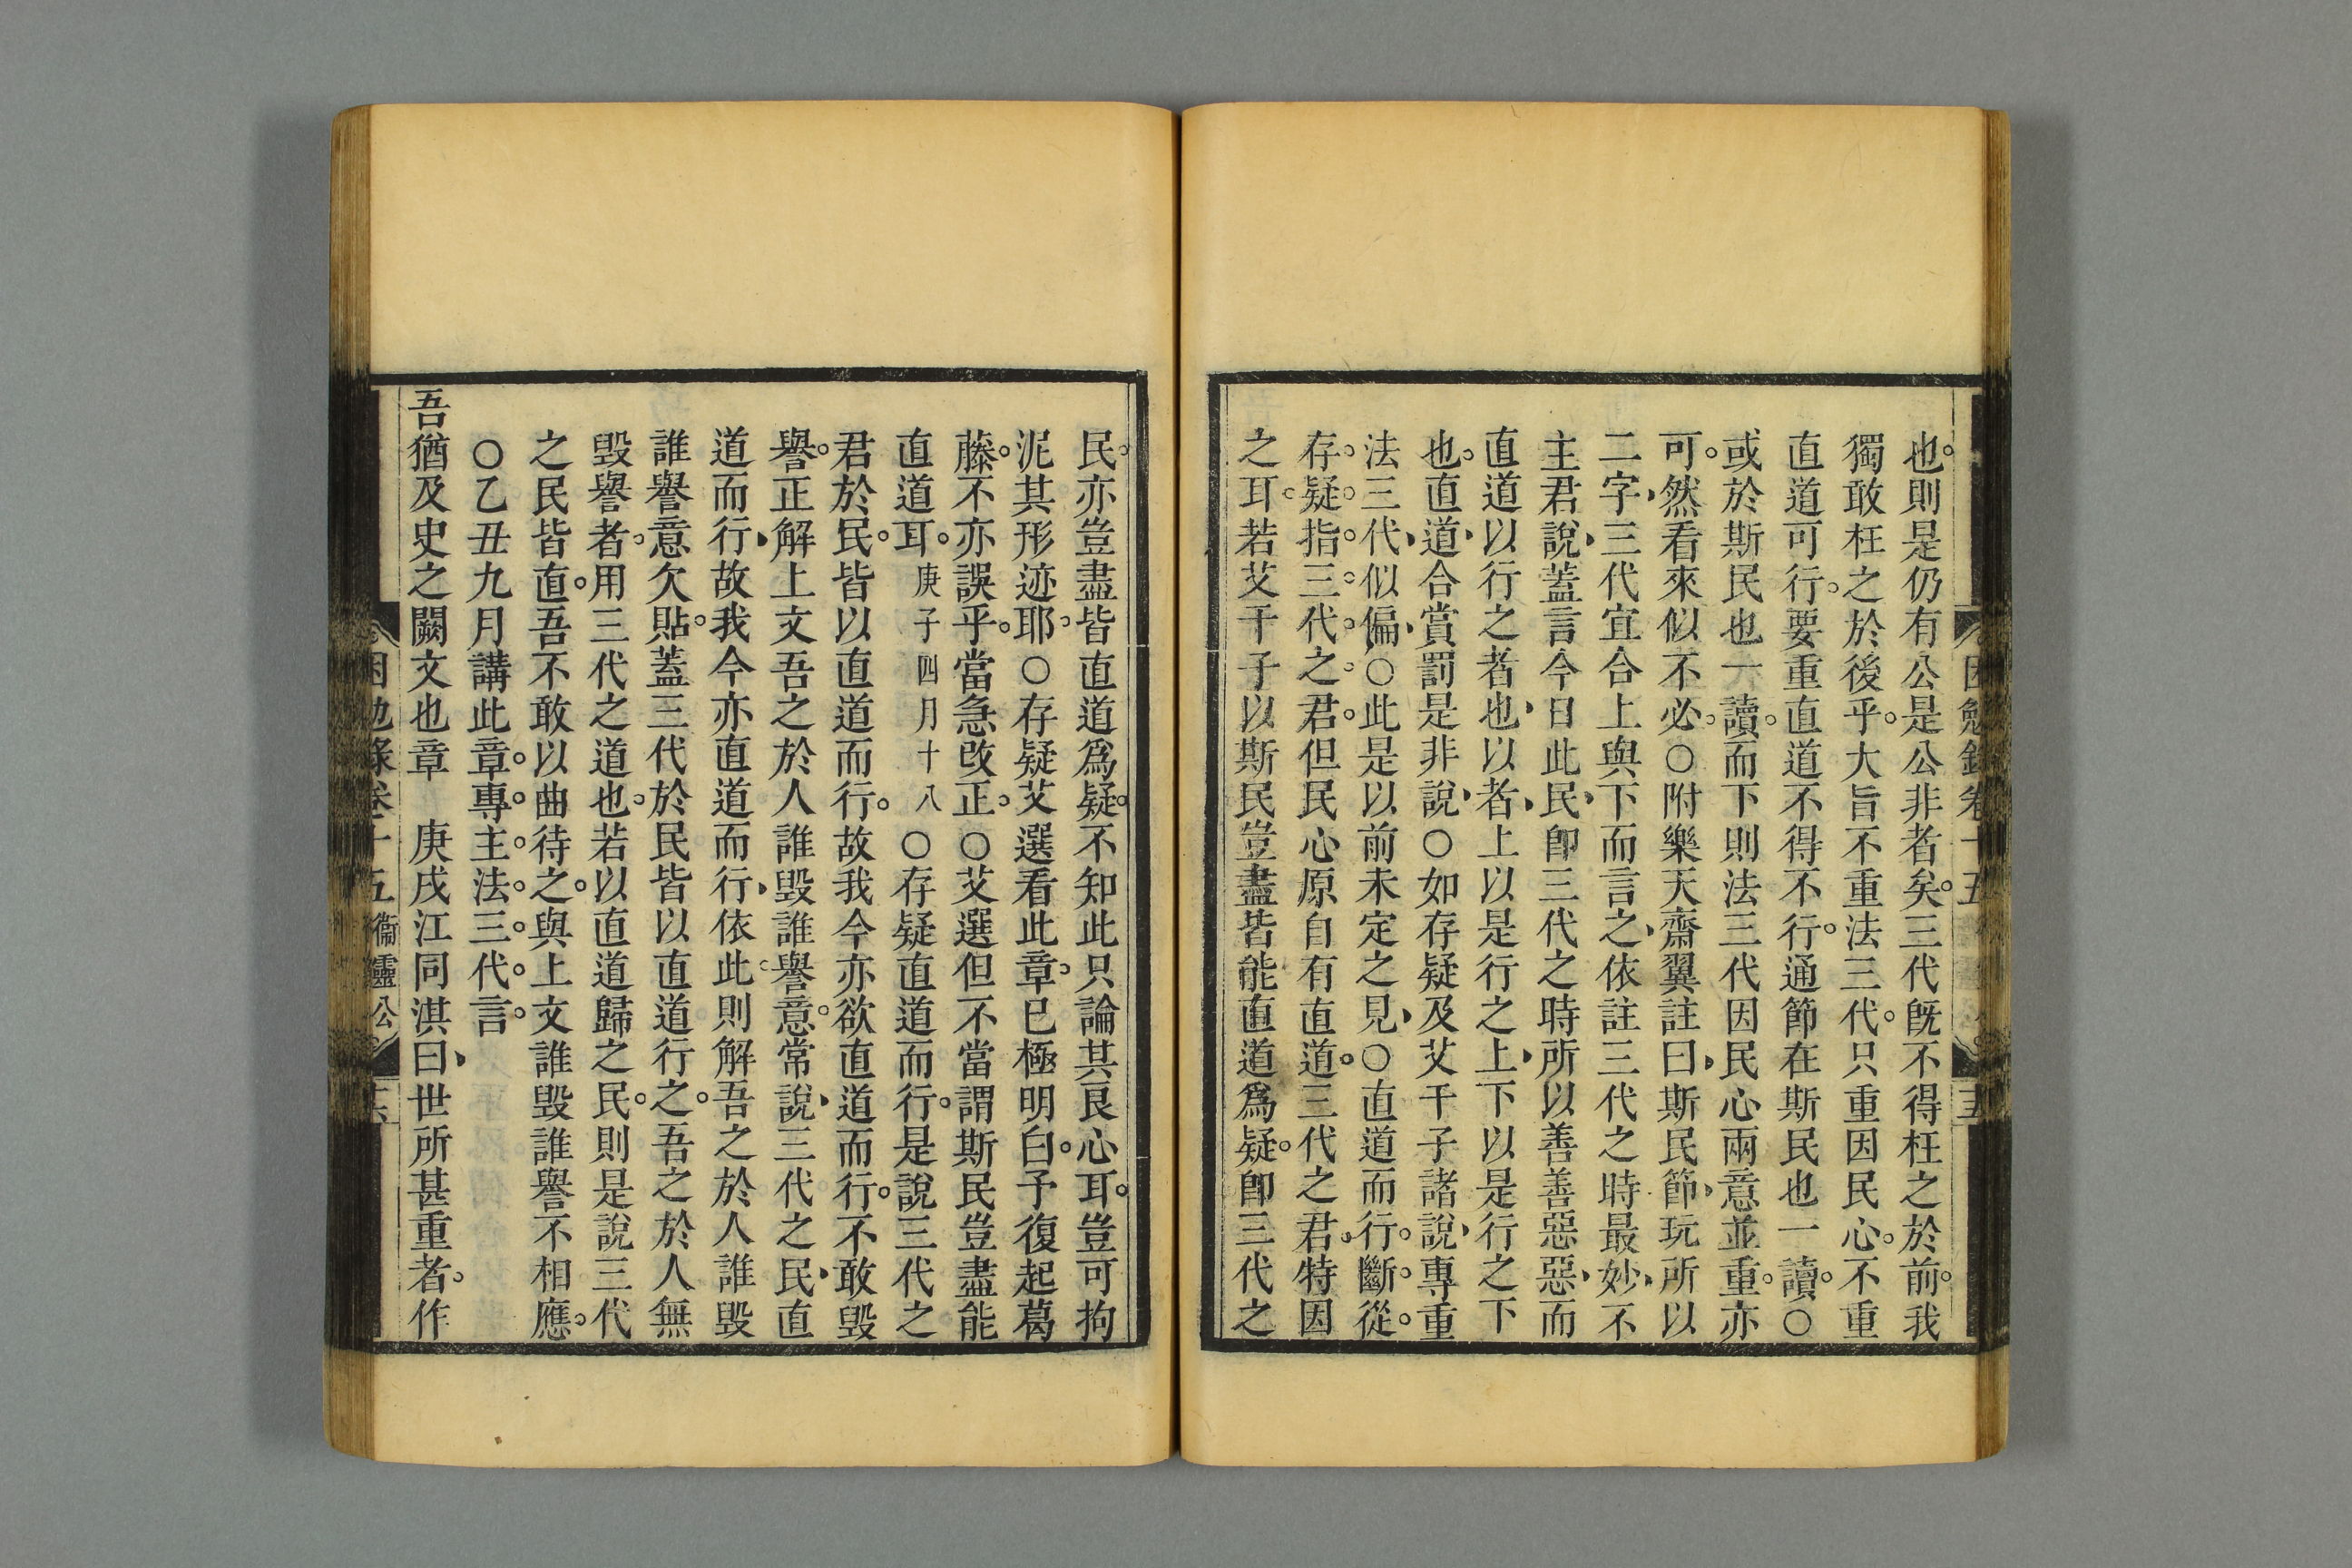 也則是仍有公是公非者矣三代旣不得枉之於前我
獨敢枉之於後乎大旨不重法三代只重因民心不重
直道可行要重直道不得不行通節在斯民也一讀○
或於斯民也一讀而下則法三代因民心兩意並重亦
可然看來似不必○附樂天齋翼註曰斯民節玩所以
二字三代宜合上與下而言之依註三代之時最妙不
主君說蓋言今日此民卽三代之時所以善善惡惡而
直道以行之者也以者上以是行之上下以是行之下
也直道合賞罰是非說○如存疑及艾千子諸說專重
法三代似偏○此是以前未定之見○直道而行斷從
存疑指三代之君但民心原自有直道三代之君特因
之耳若艾千子以斯民豈盡皆能直道爲疑卽三代之
民亦豈盡皆直道爲疑不知此只論其良心耳豈可拘
泥其形迹耶○存疑艾選看此章已極明白予復起葛
藤不亦誤乎當急改正○艾選但不當謂斯民豈盡能
直道耳庚子四月十八○存疑直道而行是說三代之
君於民皆以直道而行故我今亦欲直道而行不敢毀
譽正解上文吾之於人誰毀誰譽意常說三代之民直
道而行故我今亦直道而行依此則解吾之於人誰毀
誰譽意欠貼蓋三代於民皆以直道行之吾之於人無
毀譽者用三代之道也若以直道歸之民則是說三代
之民皆直吾不敢以曲待之與上文誰毀誰譽不相應
○乙丑九月講此章專主法三代言
吾猶及史之闕文也章　庚戌江同淇曰世所甚重者作
困勉錄卷十五 衞靈公 十六